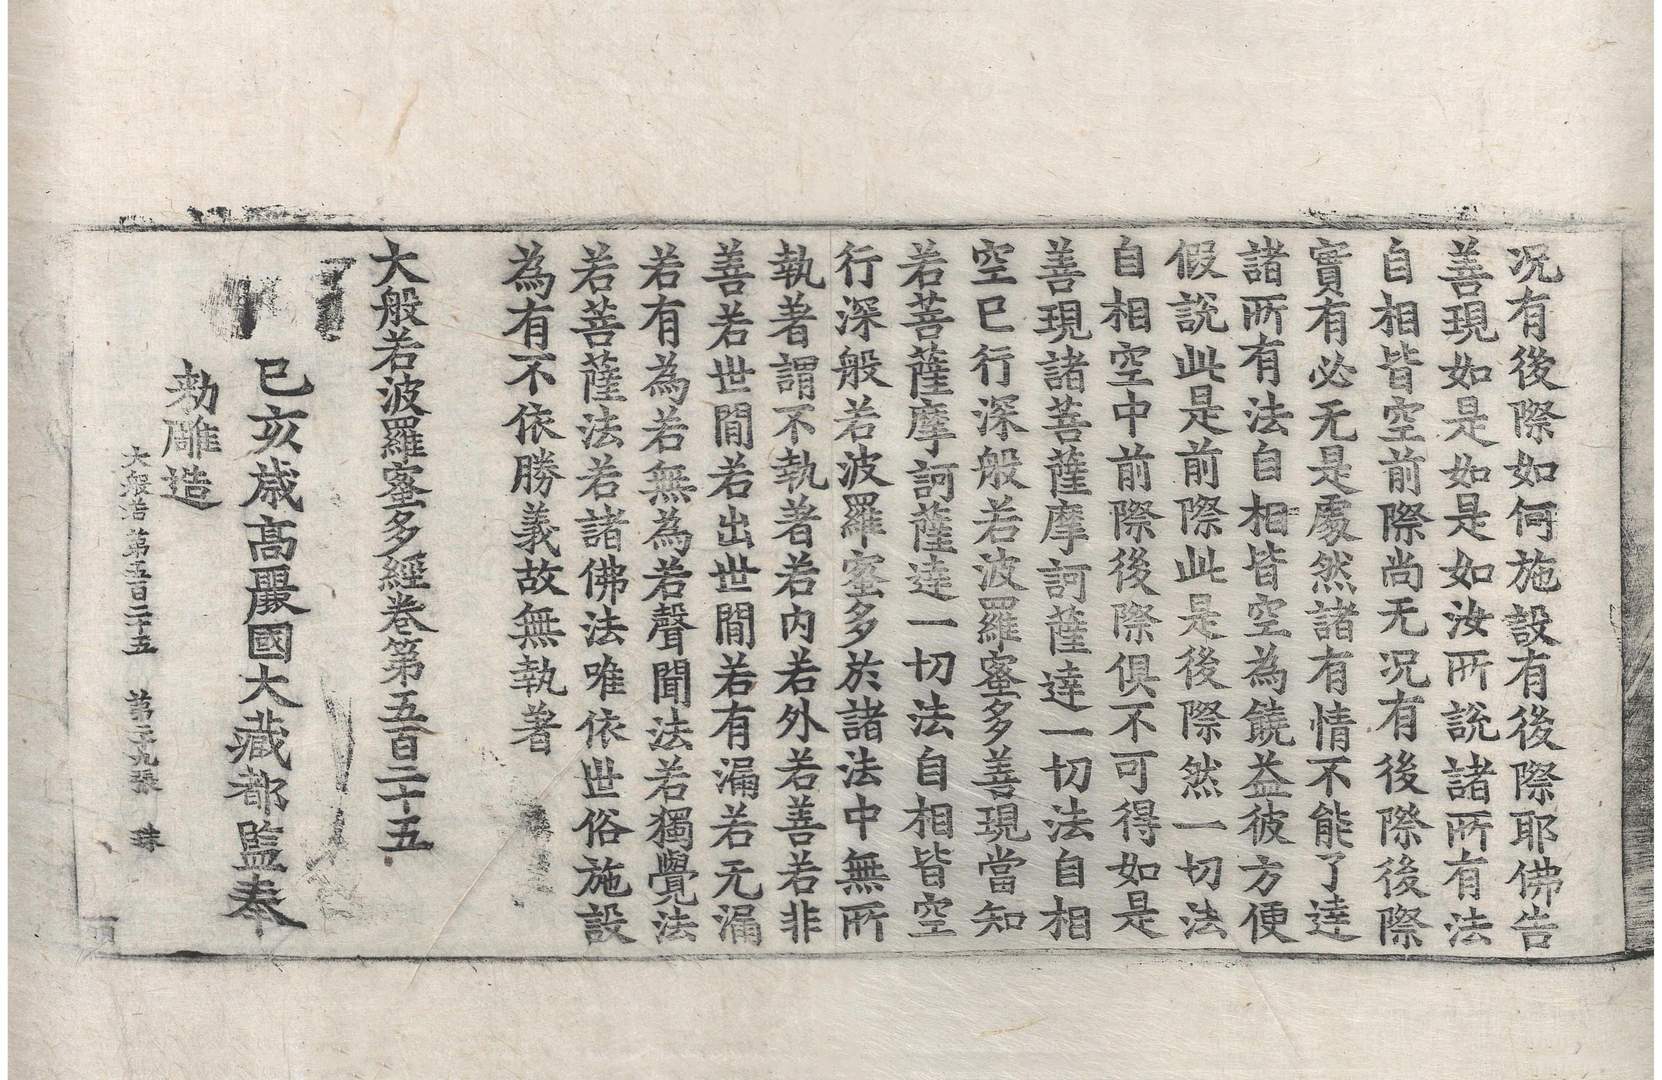 况有後際如何施設有後際耶佛告
善現如是如是如汝所說諸所有法
自相皆空前際尚无况有後際後際
實有必无是處然諸有情不能了達
諸所有法自相皆空為饒益彼方便
假說此是前際此是後際然一切法
自相空中前際後際俱不可得如是
善現諸菩薩摩訶薩達一切法自相
空已行深般若波羅蜜多善現當知
若菩薩摩訶薩達一切法自相皆空
行深般若波羅蜜多於諸法中無所
執著謂不執著若內若外若善若非
善若世間若出世間若有漏若无漏
若有為若無為若聲聞法若獨覺法
若菩薩法若諸佛法唯依世俗施設
為有不依勝義故無執著
大般若波羅蜜多經卷第五百二十五
己亥歲高麗國大藏都監奉
勅雕造
大般若第五百二十五 第二九張 珠